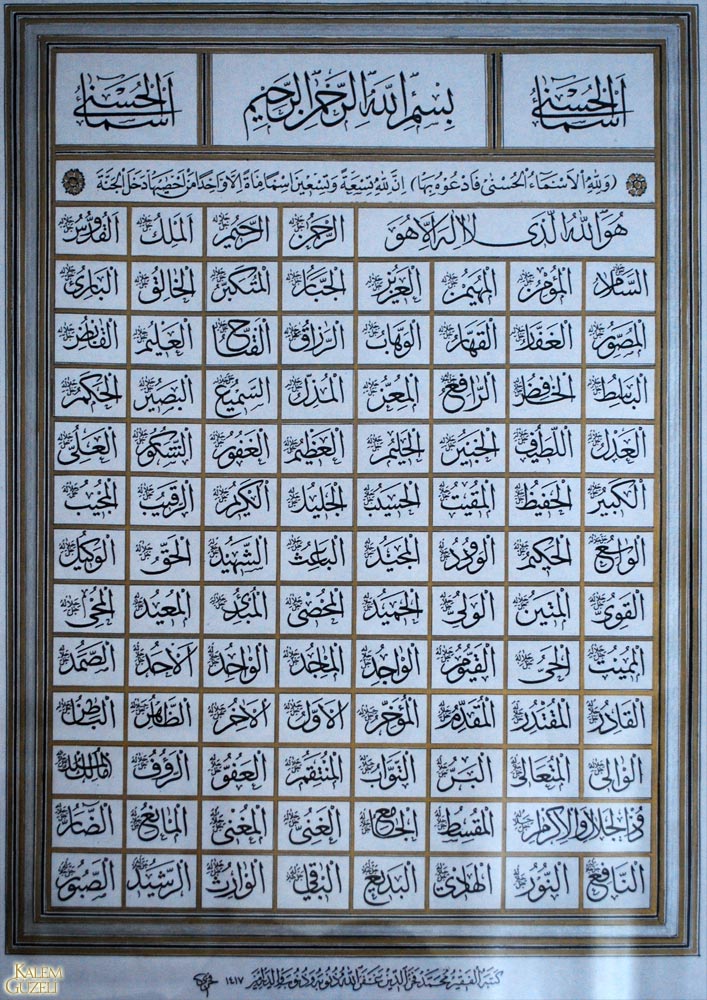 أسماء الحسنى بسم الله الرحمن الرحيم أسماء الحسنى
(ولله الاسماء الحسنى فادعوه بها) ان لله تسعة وتسعين اسما مائة الا واحدا من احصيها دخل الجنة
هو الله الذي لا اله الا هو الرحمن الرحيم الملك القدوس
السلام المؤمن المهيمن العزيز الجبار المتكبر الخالق البارئ
المصور الغفار القهار الوهاب الرزاق الفتاح العليم القابض
الباسط الخافض الرافع المعز المذل السميع البصير الحكم
العدل اللطيف الخبير الحليم العظيم الغفور الشكور العلي
الكبير الحفيظ المقيت الحسيب الجليل الكريم الرقيب المجيب
الواسع الحكيم الودود المجيد الباعث الشهيد الحق الوكيل
القوي المتين الولي الحميد المحصي المبدئ المعيد المحيي
المميت الحي القيوم الواجد الماجد الواحد الاحد الصمد
القادر المقتدر المقدم المؤخر الاول الاخر الظاهر الباطن
الوالي المتعالي البر التواب المنتقم العفو الرؤف مالك الملك
ذو الجلال والاكرام المقسط الجامع الغني المغني المانع الضار
النافع النور الهادي البديع الباقي الوارث الرشيد الصبور
كتبه الفقير محمد فخرالدين غفر الله ذنوبه ١٤١٧
KALEM
GUZELI